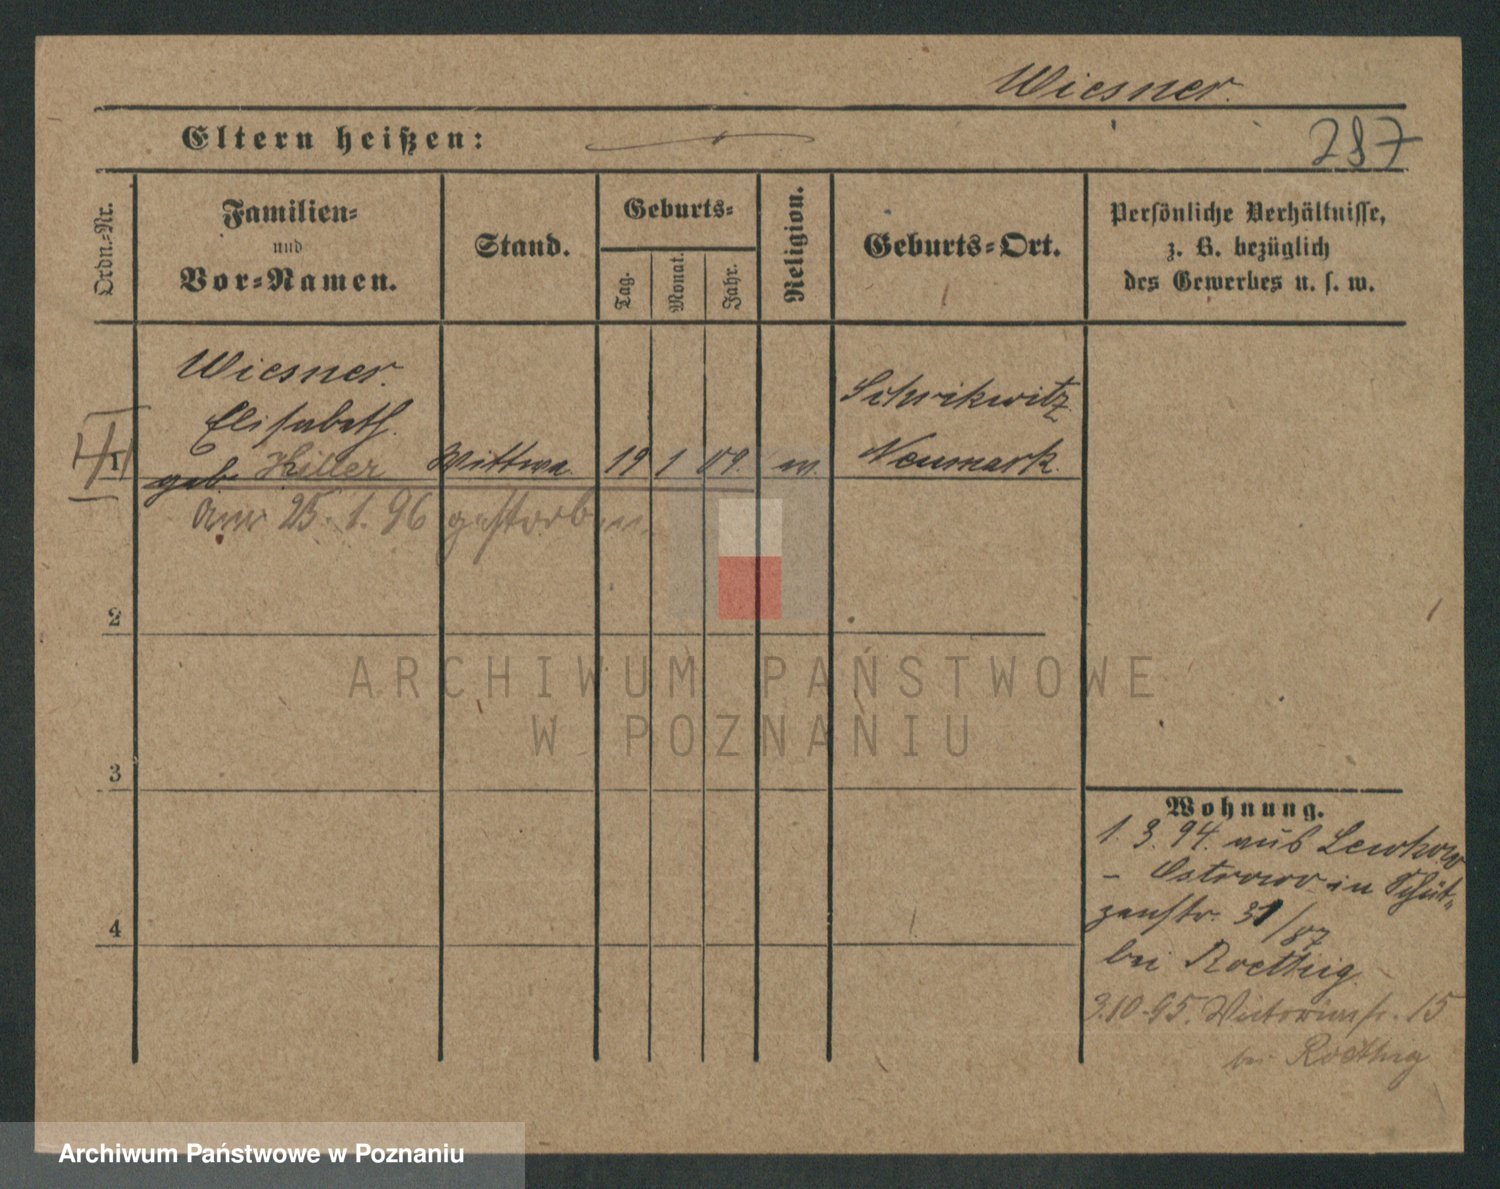 Wiesner.
Eltern heißen:
287
Ordn.-Nr.
Familien-
und
Vor-Namen.
Stand.
Geburts-
Tag.
Monat.
Jahr.
Religion.
Geburts-Ort.
Persönliche Verhältnisse,
z. B. bezüglich
des Gewerbes u. s. w.
Wiesner.
Elisabeth.
geb. Hiller
Wittwe.
19
1
09.
ev.
Neumark.
am 25.1.96 gestorben.
2
3
4
Wohnung.
1. 3. 94. aus Lewkow
- Ostrowo in Schüt-
zenstr. 31/87
bei Roethig.
3.10.95. Victoriastr. 15
bei Roethig
ARCHIWUM PAŃSTWOWE
W POZNANIU
Archiwum Państwowe w Poznaniu